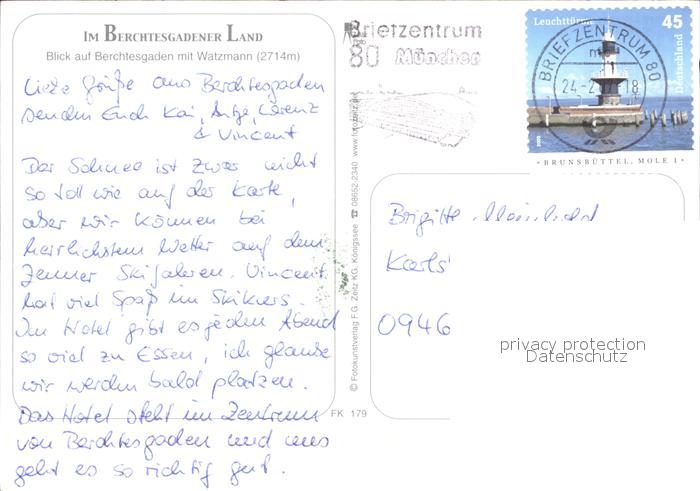 IM BERCHTESGADENER LAND
Blick auf Berchtesgaden mit Watzmann (2714m)
Liebe Grüße aus Berchtesgaden
senden Euch Kai, Antje, Lorenz
& Vincent
Der Schnee ist zwar nicht
so toll wie auf der Karte,
aber wir können bei
herrlichstem Wetter auf dem
Jenner Skifahren. Vincent
hat viel Spaß im Skikurs.
Im Hotel gibt es jeden Abend
so viel zu Essen, ich glaube
wir werden bald platzen.
Das Hotel steht im Zentrum
von Berchtesgaden und uns
geht es so richtig gut.
© Fotokunstverlag F.G. Zeitz KG, Königssee ☎ 08652-2340 www.fotozeitz.de
FK 179
Briefzentrum
80 München
BRIEFZENTRUM 80
24-2
18
Leuchttürme
45
Deutschland
BRUNSBÜTTEL, MOLE 1
Brigitte
Karls
0946
privacy protection
Datenschutz